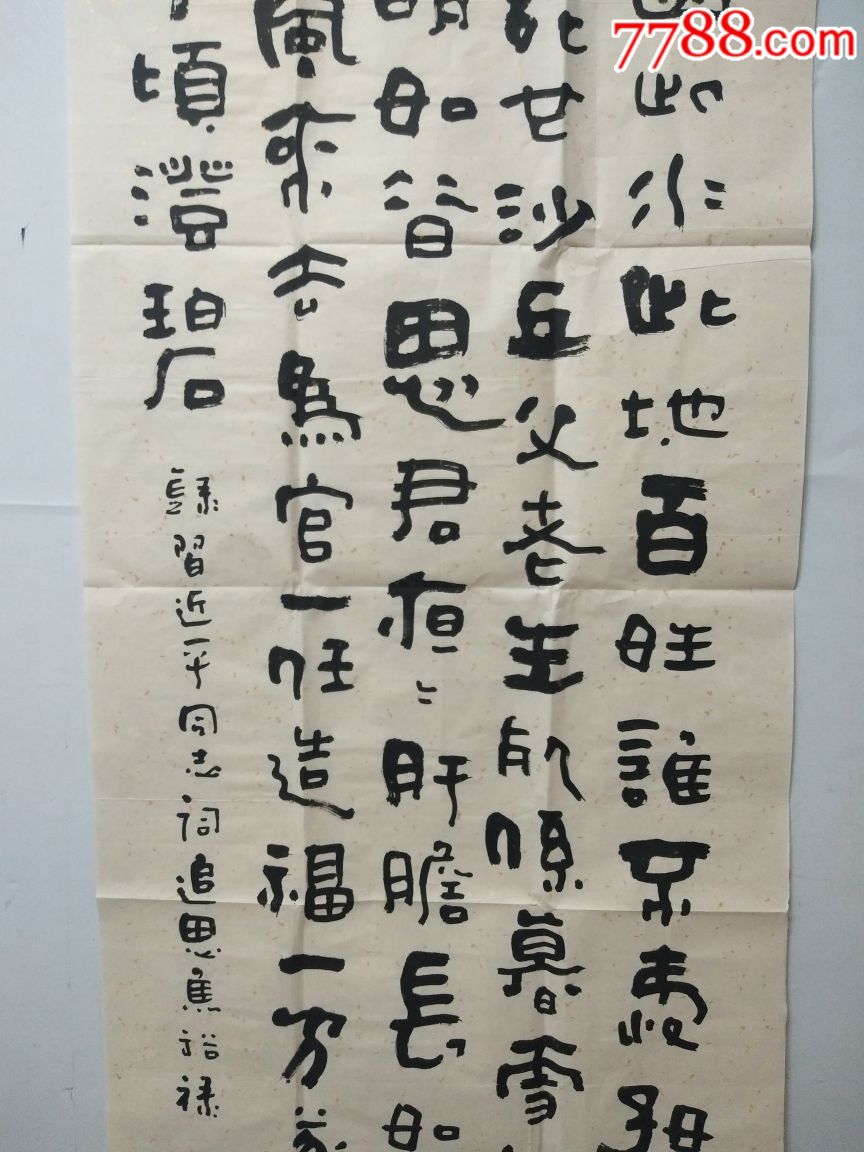 7788.com
此水此地百姓誰不愛好
死也沙丘父老生死係暮雪
明如昔思君夜〻肝膽長如
風來去為官一任造福一方遂
頃澄碧
錄習近平同志詞追思焦裕祿